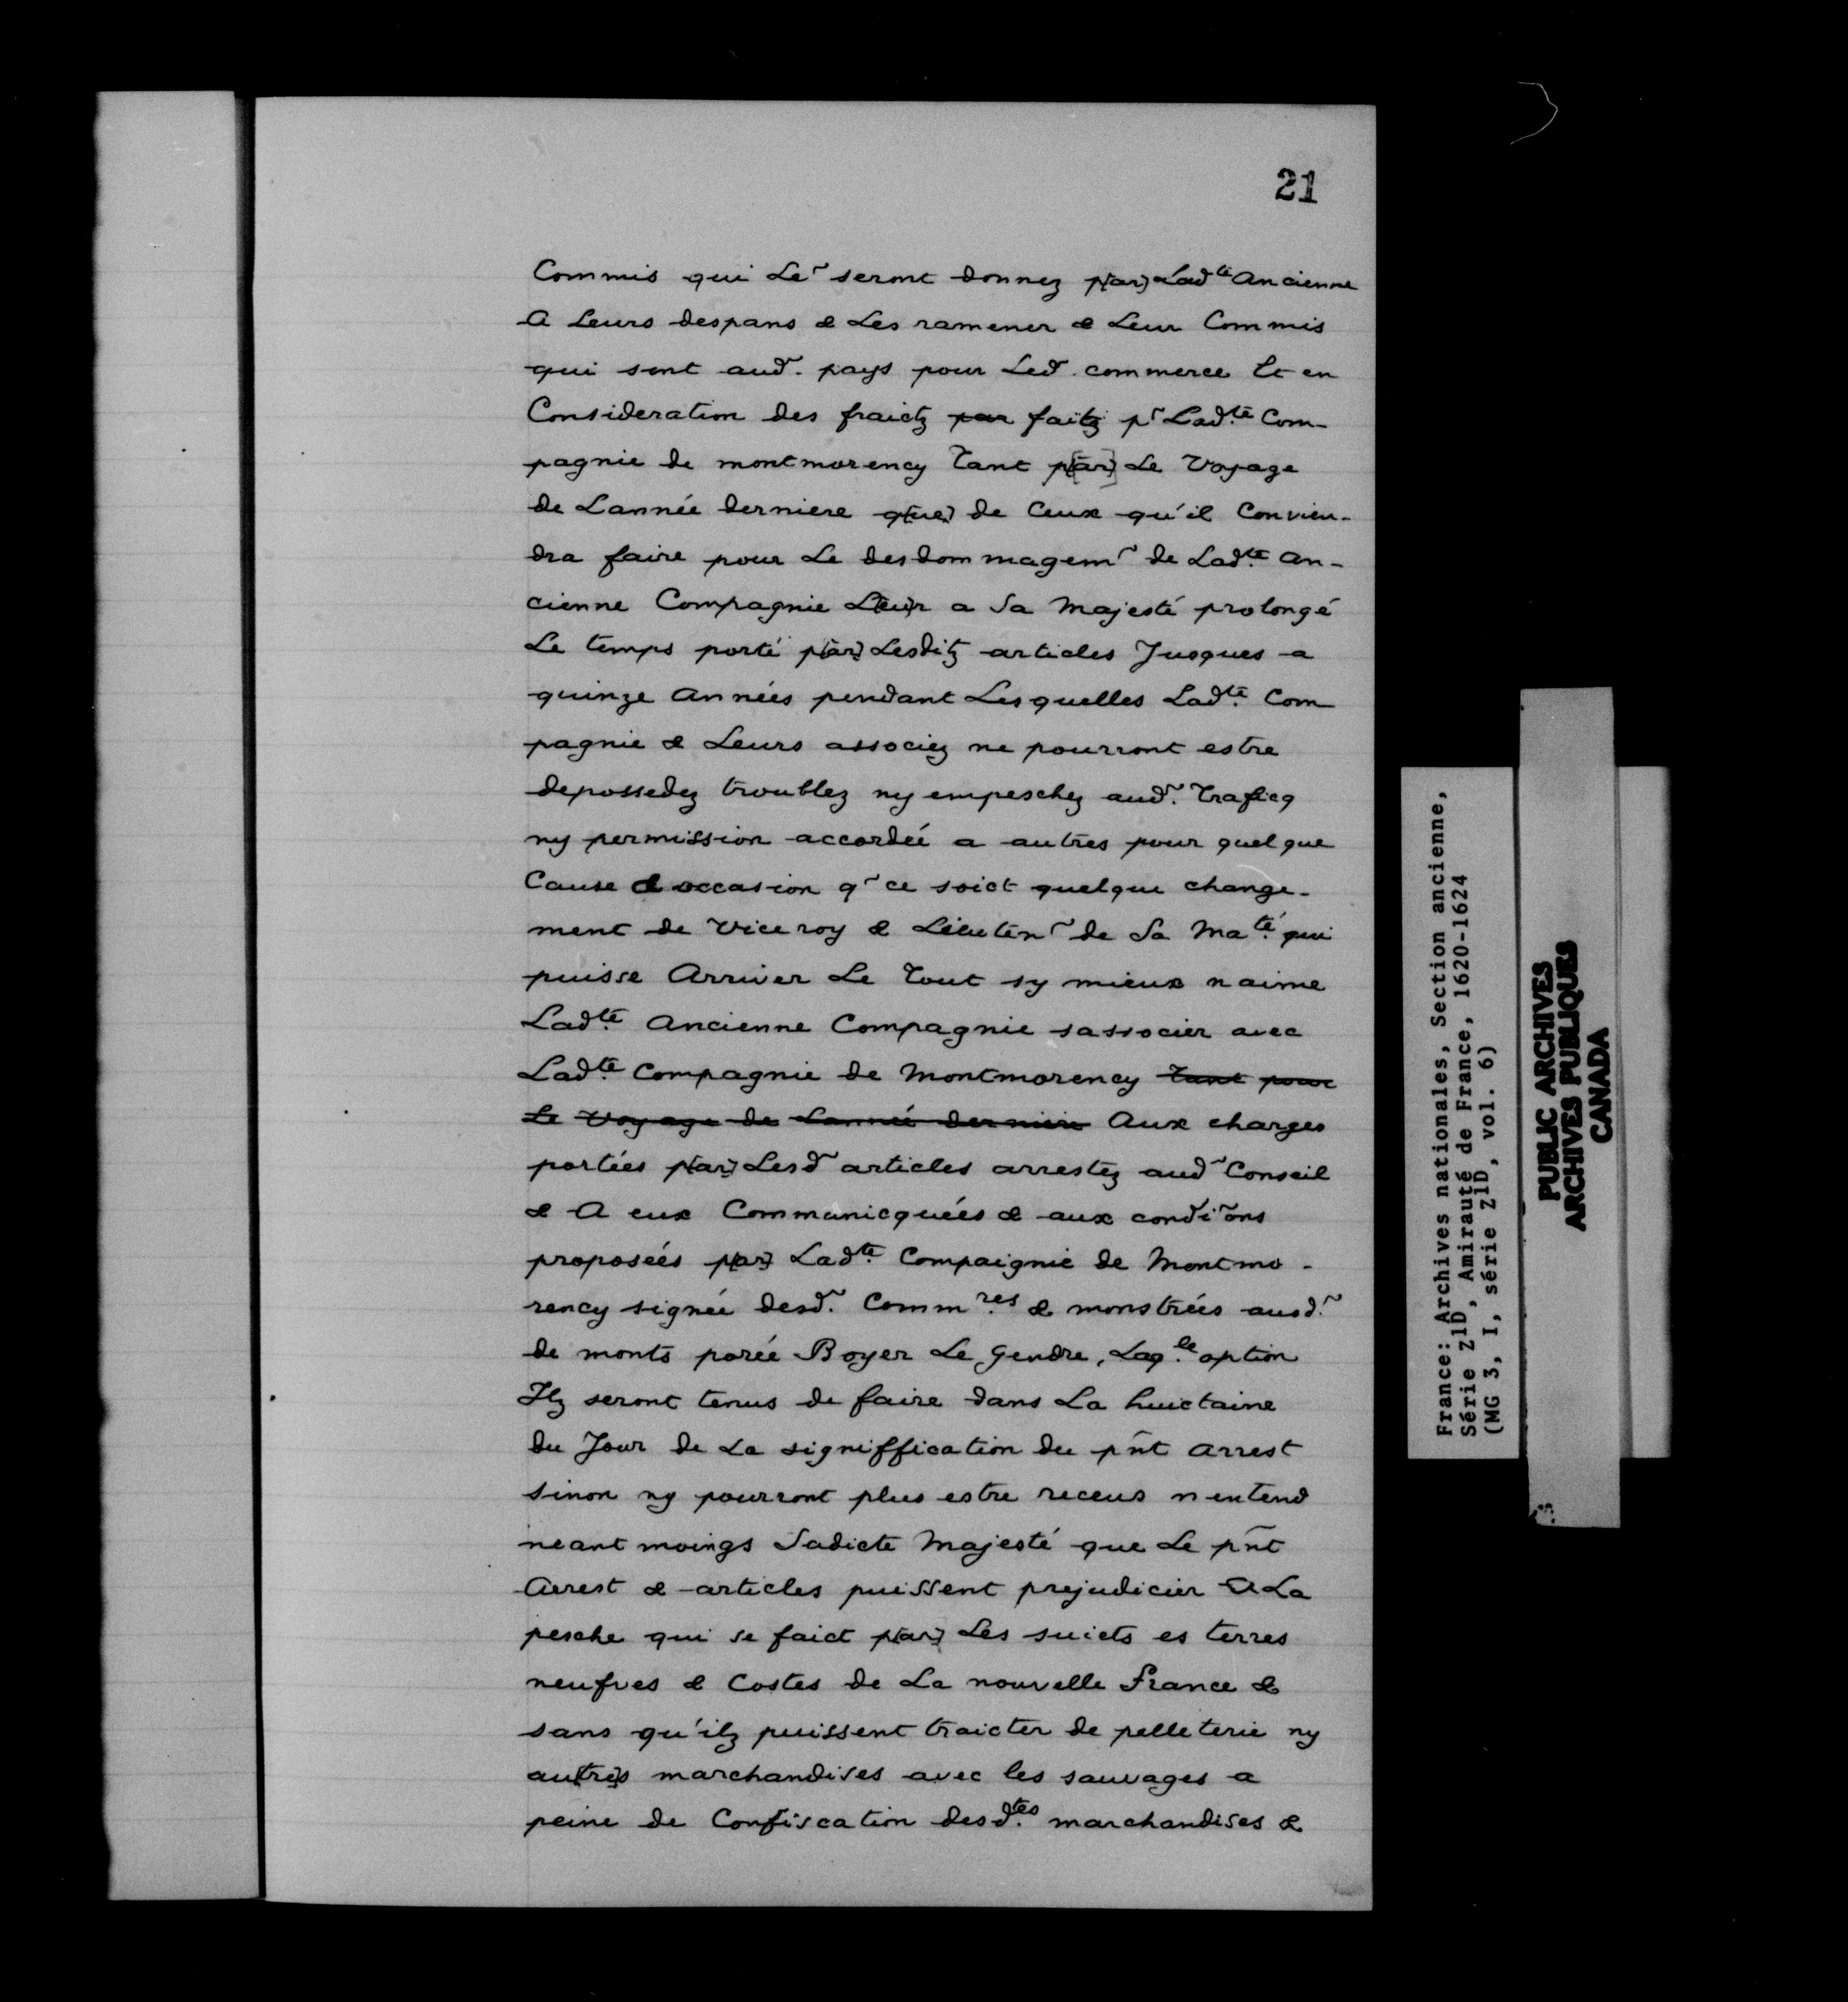 21
Commis qui Le~ seront donnez p[ar] Lad.te Ancienne
A Leurs despans & Les ramener & Leur Commis
qui sont aud~. pays pour Led~. commerce Et en
Consideration des fraictz par faitz p~ Lad.te Com-
pagnie de montmorency Tant p[ar] Le Voyage
de Lannée derniere q[ue] de Ceux qu'il Convien-
dra faire pour Le desdommagem~ de Lad.te an-
cienne Compagnie L[eu]r a Sa Majesté prolongé
Le temps porté p[ar] Lesditz articles Jusques a
quinze Années pendant Lesquelles Lad.te Com
pagnie & Leurs associez ne pourront estre
depossedez troublez ny empeschez aud~. Traficq
ny permission accordée a autres pour quelque
Cause & occasion q~ ce soict quelque change-
ment de Vice roy & Lieuten~ de Sa Ma.té qui
puisse Arriver Le Tout sy mieux n aime
Lad.te Ancienne Compagnie sassocier avec
Lad.te Compagnie de Montmorency Tant pour
Le Voyage de Lannée derniere Aux charges
portées p[ar] Lesd~ articles arrestez aud~ Conseil
& A eux Communicquées & aux condi~ons
proposées p[ar] Lad.te Compaignie de Montmo-
rency signée desd~. Comm.res & monstrées ausd.~
de monts porée Boyer Le Gendre, Laq.le option
Ilz seront tenus de faire dans La huictaine
du Jour de La signiffication du pñt arrest
sinon ny pourront plus estre receus n entend
neant moings Sadicte Majesté que Le pñt
Arrest & articles puissent prejudicier A La
pesche qui se faict p[ar] Les suicts es terres
neufves & Costes de La nouvelle France &
sans qu'ilz puissent traicter de pelleterie ny
au[tre]s marchandises avec les sauvages a
peine de Confiscation desd.tes marchandises &
France: Archives nationales, Section ancienne,
Série Z1D, Amirauté de France, 1620-1624
(MG 3, I, série Z1D, vol. 6)
PUBLIC ARCHIVES
ARCHIVES PUBLIQUES
CANADA